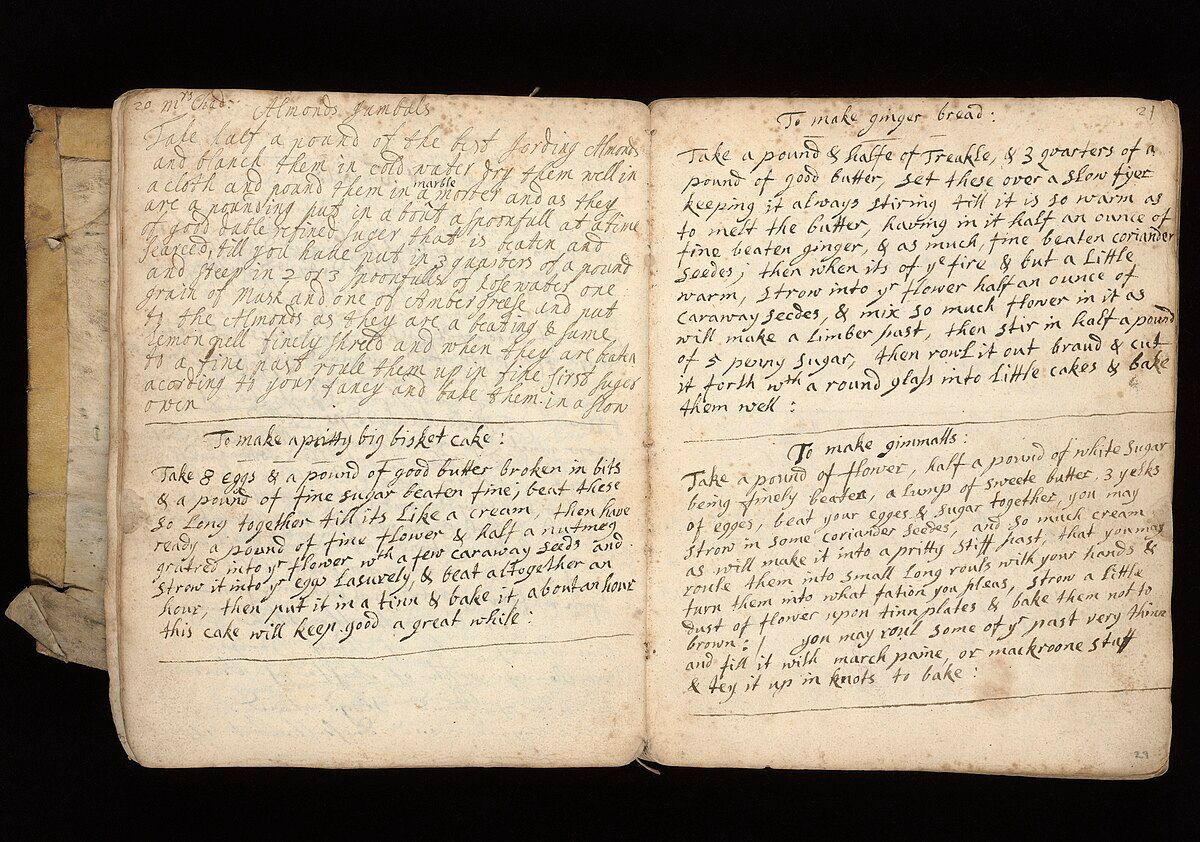 20 mrs Chad: Almonds Jumbals
Take half a pound of the best Jording Almonds
and blanch them in cold water dry them well in
a cloth and pound them in marble morter and as they
are a pounding put in a bout a spoonfull at a time
of good duble refined suger that is beaten and
searced, till you have put in 3 quarters of a pound
and steep in 2 or 3 spoonfulls of Rose water one
grain of Musk and one of Ambergreese and put
to the Almonds as they are a beating & some
lemon pell finely shred and when they are beaten
to a fine past roule them up in fine sugor
acording to your fancy and bake them in a slow
oven
To make a pritty big bisket cake:
Take 8 eggs & a pound of good butter broken in bits
& a pound of fine sugar beaten fine; beat these
so Long together till its Like a cream, then have
ready a pound of fine flower & half a nutmeg
grated into yr flower wth a few caraway seeds and
strow it into yr eggs Lasurely, & beat altogether an
hour, then put it in a tinn & bake it, about an hour
this cake will keep good a great while:
21
To make ginger bread:
Take a pound & halfe of Treakle, & 3 quarters of a
pound of good butter, set these over a slow fyer
keeping it always stiring till it is so warm as
to melt the butter, having in it half an ounce of
fine beaten ginger, & as much, fine beaten coriander
seedes; then when its of ye fire & but a Little
warm, strow into yr flower half an ounce of
caraway seedes, & mix so much flower in it as
will make a Limber past, then stir in half a pound
of 5 penny sugar, then rowl it out braud & cut
it forth wth a round glass into Little cakes & bake
them well:
To make gimmalls:
Take a pound of flower, half a pound of white Sugar
being finely beaten, a Lump of sweete butter, 3 yelks
of egges, beat your egges & sugar together, you may
strow in some coriander seedes, and so much cream
as will make it into a pritty stiff past, that you may
roule them into small Long rouls with your hands &
turn them into what fation you pleas, strow a little
dust of flower upon tinn plates & bake them not to
brown: you may roul some of yr past very thinn
and fill it with march paine, or mackroone stuff
& tey it up in knots to bake:
29